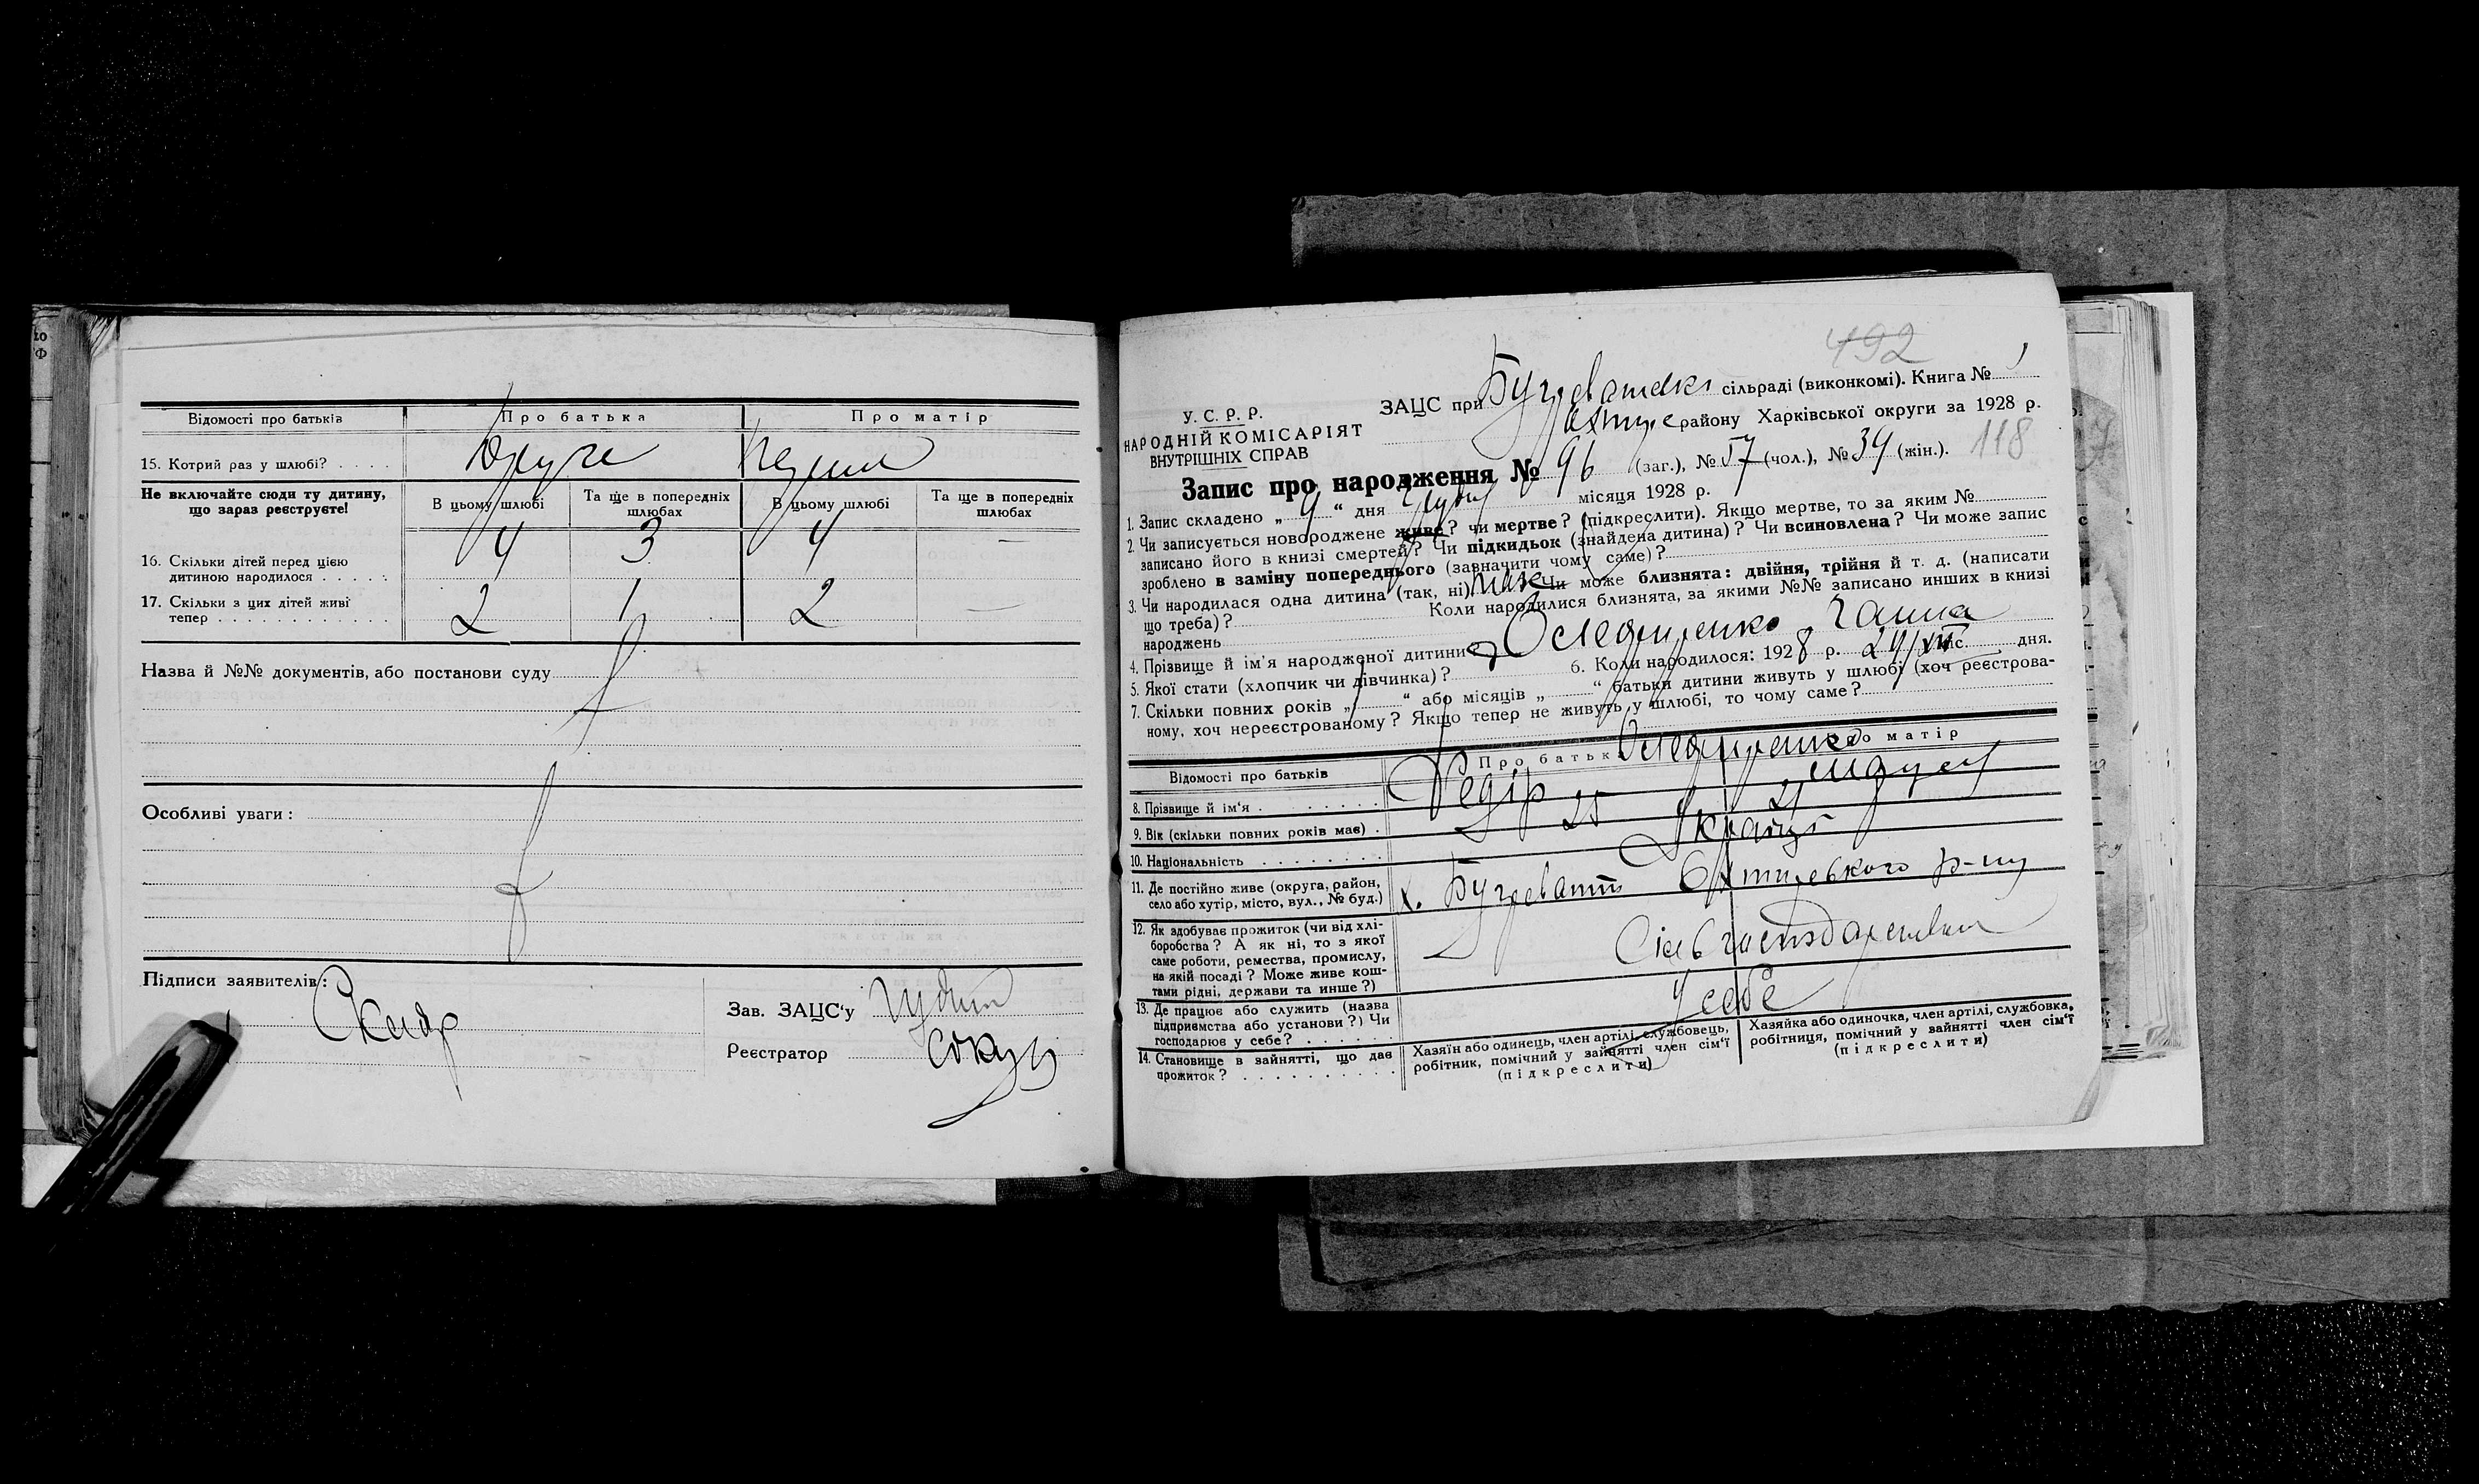 Відомості про батьків
Про батька
Про матір
15. Котрий раз у шлюбі? . . . .
Друге
Перше
Не включайте сюди ту дитину,
що зараз реєструєте!
В цьому шлюбі
Та ще в попередніх
шлюбах
В цьому шлюбі
Та ще в попередніх
шлюбах
16. Скільки дітей перед цією
дитиною народилося . . . . .
4 3 4 —
17. Скільки з цих дітей живі
тепер . . . . . . . . . . . .
2 1 2 —
Назва й №№ документів, або постанови суду
Особливі уваги:
Підписи заявителів:
Зав. ЗАЦС'у
Реєстратор
492
У. С. Р. Р.
НАРОДНІЙ КОМІСАРІЯТ
ВНУТРІШНІХ СПРАВ
ЗАЦС при сільраді (виконкомі). Книга № 1
району Харківської округи за 1928 р.
118
Запис про народження № 96 (заг.), № 57 (чол.), № 39 (жін.).
1. Запис складено „ 4 “ дня місяця 1928 р.
2. Чи записується новороджене живе? чи мертве? (підкреслити). Якщо мертве, то за яким №
записано його в книзі смертей? Чи підкидьок (знайдена дитина)? Чи всиновлена? Чи може запис
зроблено в заміну попереднього (зазначити чому саме)?
3. Чи народилася одна дитина (так, ні) так Чи може близнята: двійня, трійня й т. д. (написати
що треба)? Коли народилися близнята, за якими №№ записано инших в книзі
народжень
4. Прізвище й ім'я народженої дитини Ганна
5. Якої стати (хлопчик чи дівчинка)? 6. Коли народилося: 1928 р. міс. дня.
7. Скільки повних років „ “ або місяців „ “ батьки дитини живуть у шлюбі (хоч реєстрова-
ному, хоч нереєстрованому? Якщо тепер не живуть у шлюбі, то чому саме?
Відомості про батьків
Про батька
Про матір
8. Прізвище й ім'я . . . . . . . .
Федір
9. Вік (скільки повних років має) .
25
10. Національність . . . . . . . .
Українці
11. Де постійно живе (округа, район,
село або хутір, місто, вул., № буд.)
х. р-ну
12. Як здобуває прожиток (чи від хлі-
боробства? А як ні, то з якої
саме роботи, ремества, промислу,
на якій посаді? Може живе кош-
тами рідні, держави та инше?)
13. Де працює або служить (назва
підприємства або установи?) Чи
господарює у себе? . . . . . .
У себе
14. Становище в зайнятті, що дає
прожиток? . . . . . . . . . .
Хазяїн або одинець, член артілі, службовець,
робітник, помічний у зайнятті член сім'ї
(підкреслити)
Хазяйка або одиночка, член артілі, службовка,
робітниця, помічний у зайнятті член сім'ї
(підкреслити)